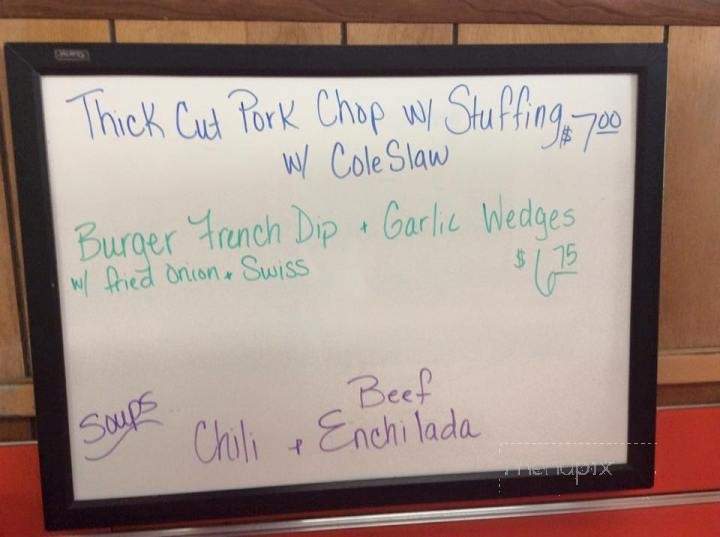 Thick Cut Pork Chop w/ Stuffing $7.00
w/ Cole Slaw
Burger French Dip + Garlic Wedges
w/ fried Onion + Swiss $6.75
Soups Chili + Beef Enchilada
menupix